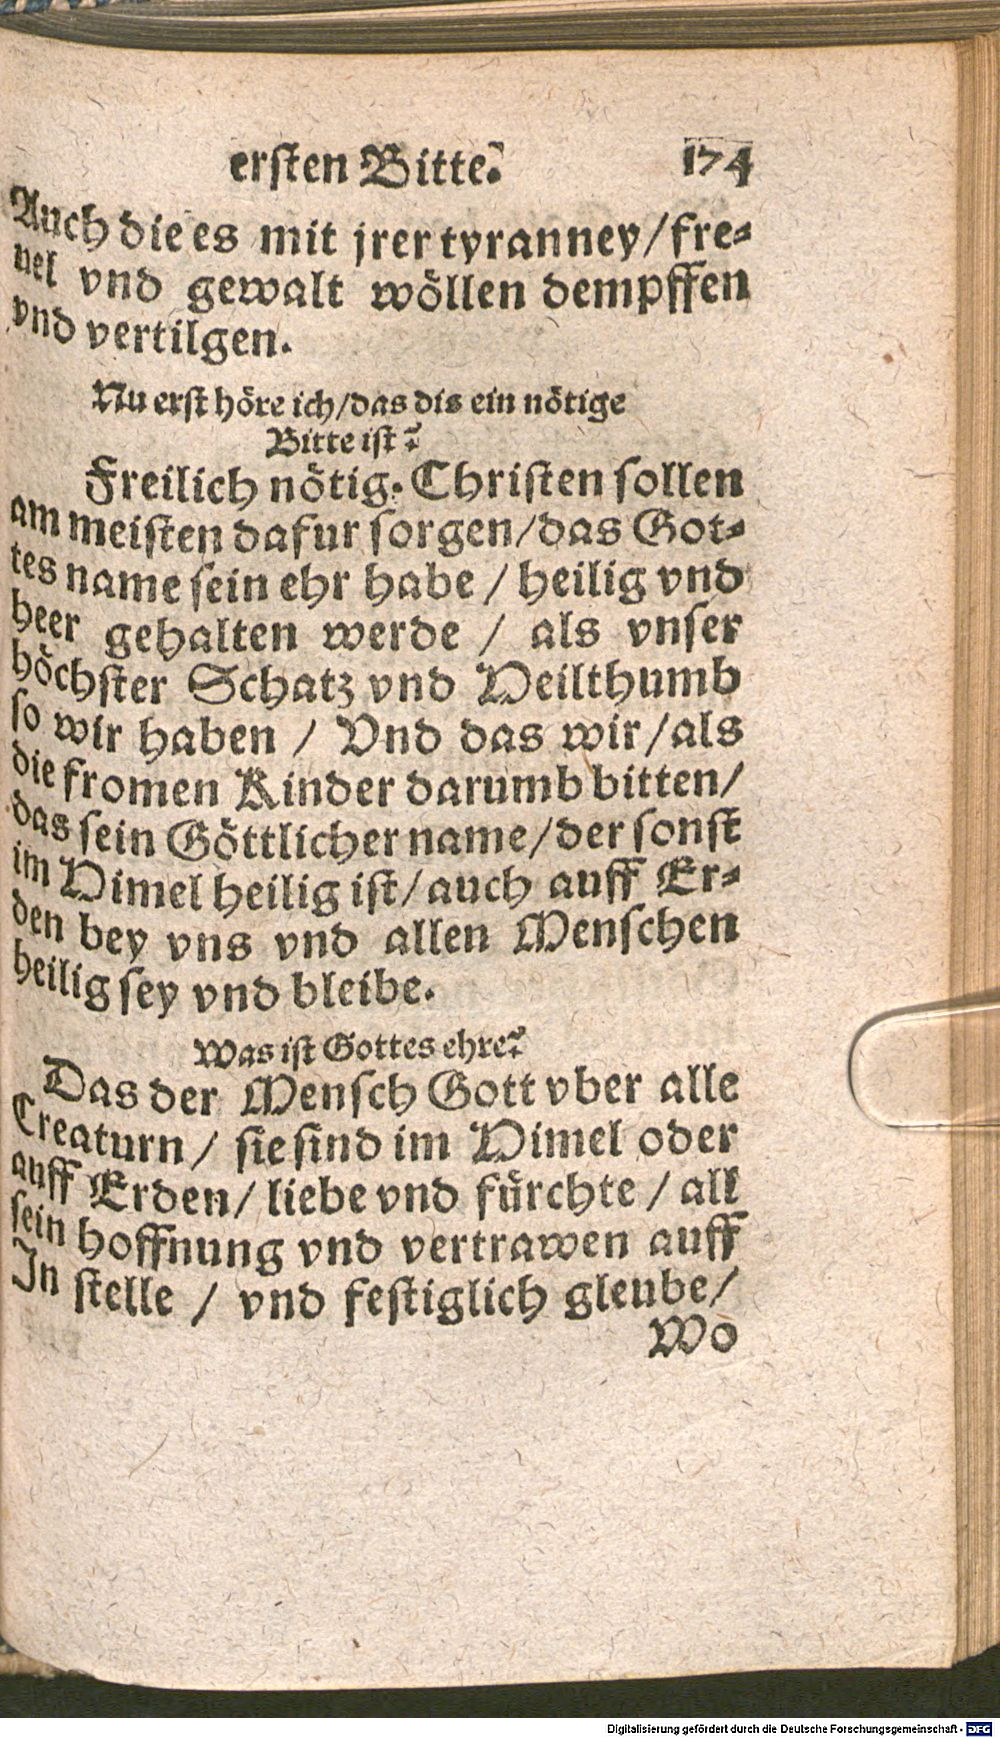 ersten Bitte. 174
Auch die es mit jrer tyranney/fre-
uel vnd gewalt wöllen dempffen
vnd vertilgen.
Nu erst höre ich/das dis ein nötige
Bitte ist?
Freilich nötig. Christen sollen
am meisten dafur sorgen/das Got-
tes name sein ehr habe / heilig vnd
heer gehalten werde / als vnser
höchster Schatz vnd Heilthumb
so wir haben / Vnd das wir/als
die fromen Kinder darumb bitten/
das sein Göttlicher name/der sonst
im Himel heilig ist/auch auff Er-
den bey vns vnd allen Menschen
heilig sey vnd bleibe.
Was ist Gottes ehre?
Das der Mensch Gott vber alle
Creaturn / sie sind im Himel oder
auff Erden/ liebe vnd fürchte / all
sein hoffnung vnd vertrawen auff
In stelle / vnd festiglich gleube/
Wo
Digitalisierung gefördert durch die Deutsche Forschungsgemeinschaft - DFG